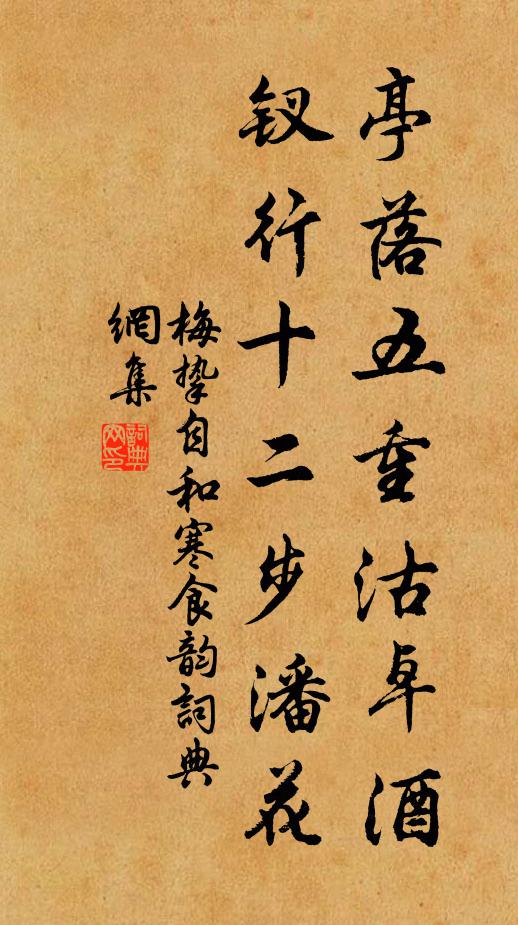 亭落五重沽卓酒
钗行十二步潘花
梅挚自和寒食韵詞典
網集
詞典網印